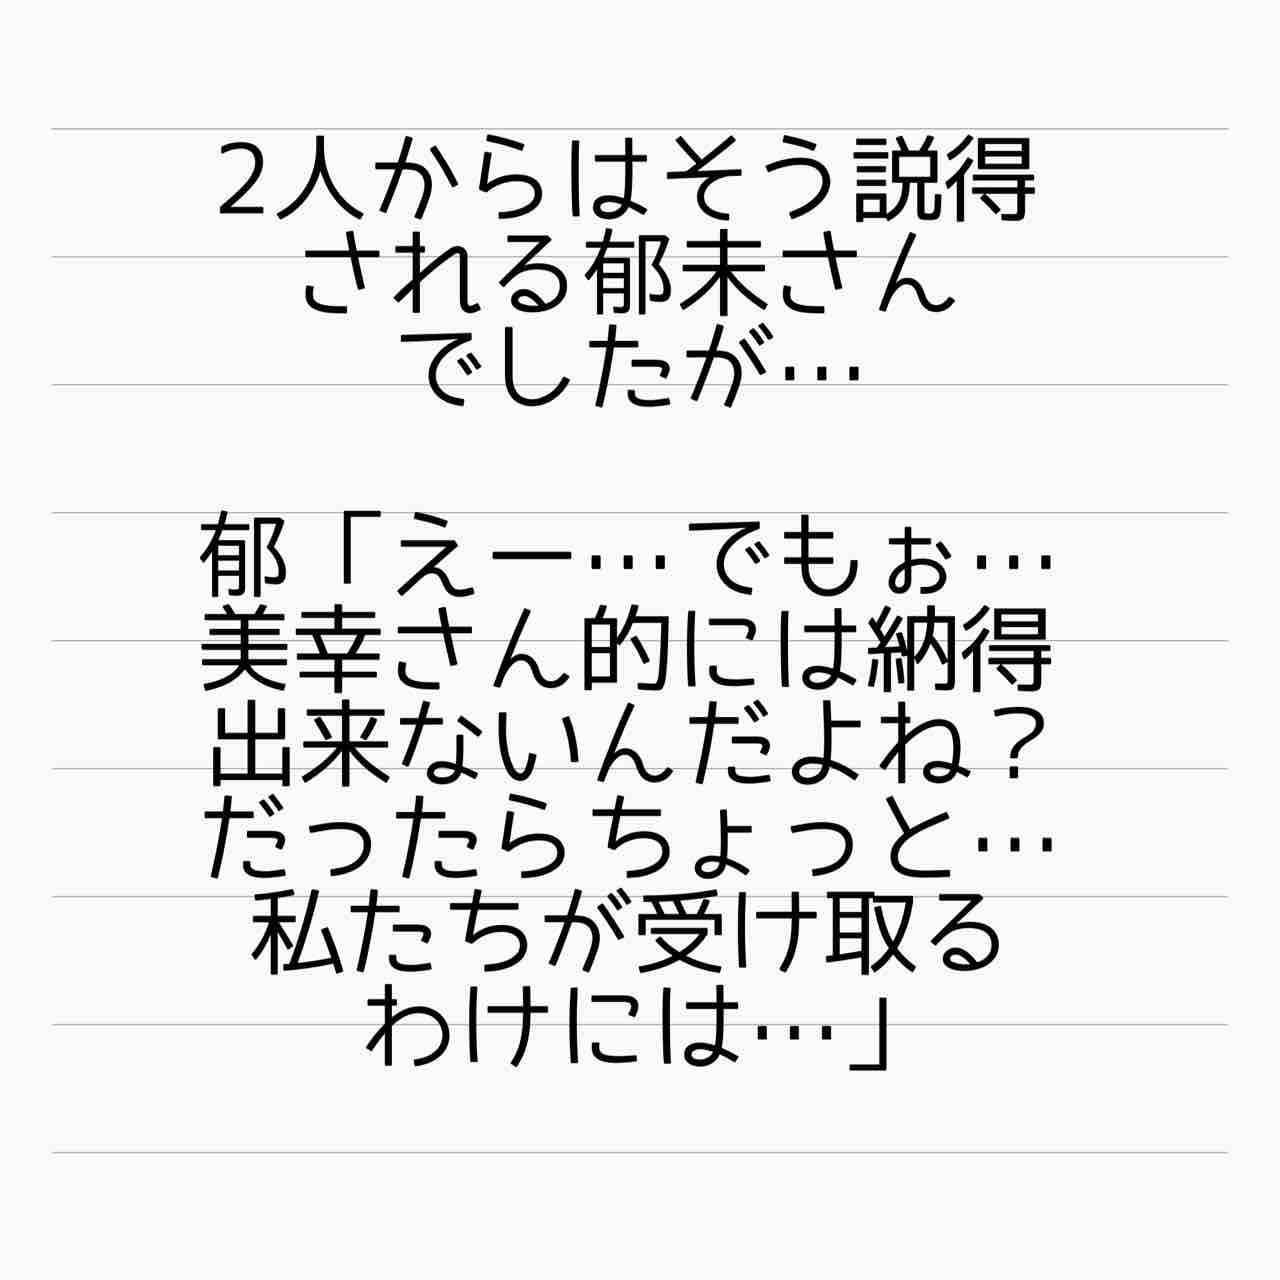 2人からはそう説得
される郁未さん
でしたが…
郁「えー…でもぉ…
美幸さん的には納得
出来ないんだよね？
だったらちょっと…
私たちが受け取る
わけには…」